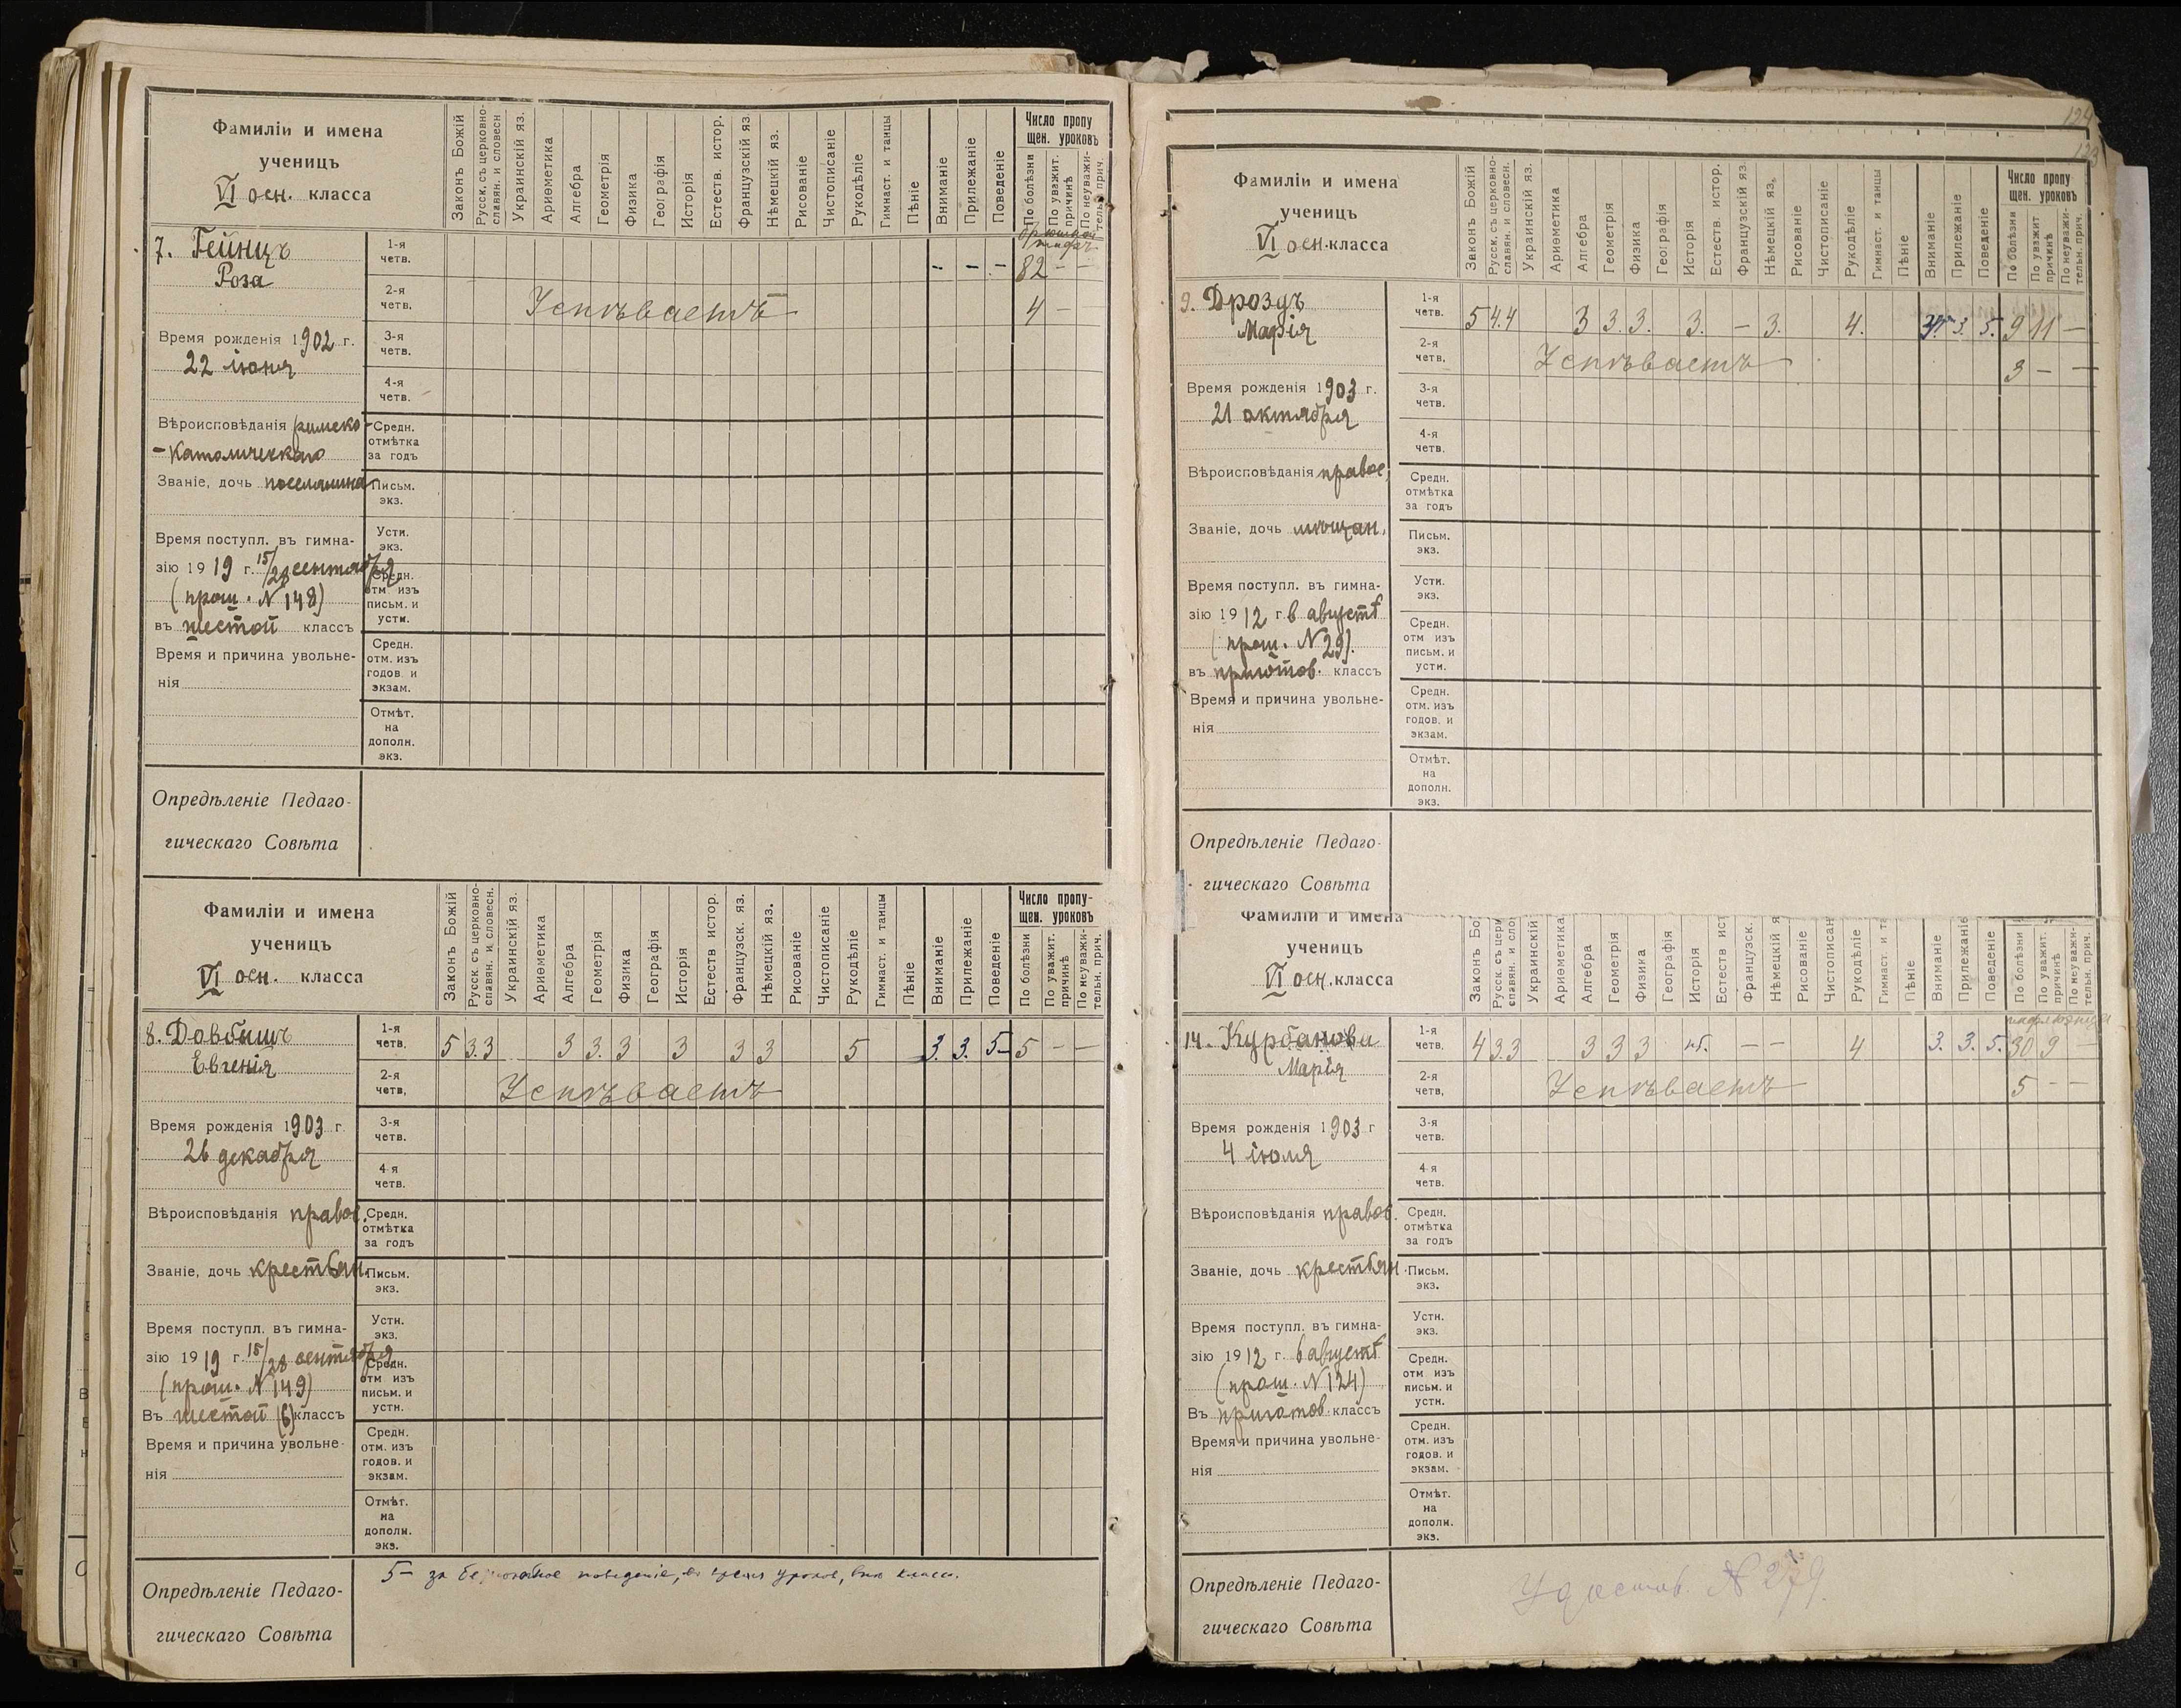 Фамиліи и имена
ученицъ
VI осн. класса
Законъ Божій
Русск. съ церковно-
славян. и словесн
Украинскій яз.
Ариѳметика
Алгебра
Геометрія
Физика
Географія
Исторія
Естеств. истор.
Французскій яз.
Нѣмецкій яз.
Рисованіе
Чистописаніе
Рукодѣліе
Гимнаст. и танцы
Пѣніе
Вниманіе
Прилежаніе
Поведеніе
Число пропу
щен. уроковъ
По болѣзни
По уважит.
причинѣ
По неуважи-
тельн. прич.
7. Гейнцъ
Роза
1-я
четв.
- - - 82 - -
2-я
четв.
Успѣваетъ 4 -
Время рожденія 1902 г.
22 іюня
3-я
четв.
4-я
четв.
Вѣроисповѣданія римско-
-католическаго
Средн.
отмѣтка
за годъ
Званіе, дочь поселянина
Письм.
экз.
Время поступл. въ гимна-
зію 1919 г. 15/28 сентября
(прош. N 148)
въ шестой классъ
Устн.
экз.
Средн.
отм изъ
письм. и
устн.
Время и причина увольне-
нія
Средн.
отм. изъ
годов. и
экзам.
Отмѣт.
на
дополн.
экз.
Опредѣленіе Педаго-
гическаго Совѣта
Фамиліи и имена
ученицъ
VI осн. класса
Законъ Божій
Русск. съ церковно-
славян. и словесн.
Украинскій яз.
Ариѳметика
Алгебра
Геометрія
Физика
Географія
Исторія
Естеств истор.
Французск. яз.
Нѣмецкій яз.
Рисованіе
Чистописаніе
Рукодѣліе
Гимнаст. и танцы
Пѣніе
Вниманіе
Прилежаніе
Поведеніе
Число пропу-
щен. уроковъ
По болѣзни
По уважит.
причинѣ
По неуважи-
тельн. прич.
8. Довбышъ
Евгенія
1-я
четв.
5 3.3 3 3. 3 3 3 3 5 3. 3. 5- 5 - -
2-я
четв,
Успѣваетъ
Время рожденія 1903 г
26 декабря
3-я
четв.
4-я
четв.
Вѣроисповѣданія правос.
Средн.
отмѣтка
за годъ
Званіе, дочь крестьян.
Письм.
экз.
Время поступл. въ гимна-
зію 1919 г. 15/28 сентября
(прош. N 149)
Въ шестой (6) классъ
Устн.
экз.
Средн.
отм изъ
письм. и
устн.
Время и причина увольне-
нія
Средн.
отм. изъ
годов. и
экзам.
Отмѣт.
на
дополн.
экз.
Опредѣленіе Педаго-
гическаго Совѣта
5- за поведеніе, во время уроков, внѣ класса.
124
123
Фамиліи и имена
ученицъ
VI осн. класса
Законъ Божій
Русск. съ церковно-
славян. и словесн.
Украинскій яз.
Ариѳметика
Алгебра
Геометрія
Физика
Географія
Исторія
Естеств. истор.
Французскій яз
Нѣмецкій яз.
Рисованіе
Чистописаніе
Рукодѣліе
Гимнаст. и танцы
Пѣніе
Вниманіе
Прилежаніе
Поведеніе
Число пропу
щен. уроковъ
По болѣзни
По уважит
причинѣ
По неуважи-
тельн. прич.
9. Дроздъ
Марія
1-я
четв.
5 4.4 3 3. 3. 3. - 3. 4. 3. 5. 9 11 -
2-я
четв,
Успѣваетъ 3 - -
Время рожденія 1903 г.
21 октября
3-я
четв.
4-я
четв.
Вѣроисповѣданія правос,
Средн.
отмѣтка
за годъ
Званіе, дочь мѣщан.
Письм.
экз.
Время поступл. въ гимна-
зію 1912 г. в августѣ
(прош. N 29).
въ приготов. классъ
Устн.
экз.
Средн.
отм изъ
письм. и
устн.
Время и причина увольне-
нія
Средн.
отм. изъ
годов. и
экзам.
Отмѣт.
на
дополн.
экз.
Опредѣленіе Педаго-
гическаго Совѣта
Фамиліи и имена
ученицъ
VI осн. класса
Законъ Бо
Русск. съ церк
славян. и сло
Украинскій
Ариѳметика
Алгебра
Геометрія
Физика
Географія
Исторія
Естеств ист
Французск.
Нѣмецкій я
Рисованіе
Чистописан
Рукодѣліе
Гимнаст. и та
Пѣніе
Вниманіе
Прилежаніе
Поведеніе
По болѣзни
По уважит.
причинѣ
По неуважи-
тельн. прич.
14. Курбанова
Марія
1-я
четв.
4 3.3 3 3 3 нб. - - 4 3. 3. 5. 30 9 -
2-я
четв,
Успѣваетъ 5 - -
Время рожденія 1903 г
4 іюля
3-я
четв.
4-я
четв.
Вѣроисповѣданія правос.
Средн.
отмѣтка
за годъ
Званіе, дочь крестьян.
Письм.
экз.
Время поступл. въ гимна-
зію 1912 г. в августѣ
(прош. N 124)
Въ приготов. классъ
Устн.
экз.
Средн.
отм изъ
письм. и
устн.
Время и причина увольне-
нія
Средн.
отм. изъ
годов. и
экзам.
Отмѣт.
на
дополн.
экз.
Опредѣленіе Педаго-
гическаго Совѣта
Удостов. N 279.